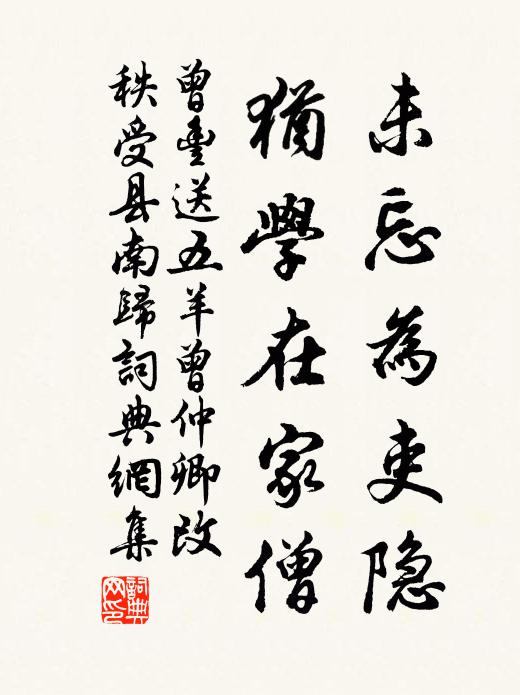 未忘為吏隐
猶學在家僧
曾豊送五羊曾仲卿改
秩受县南歸詞典網集
詞典
网印